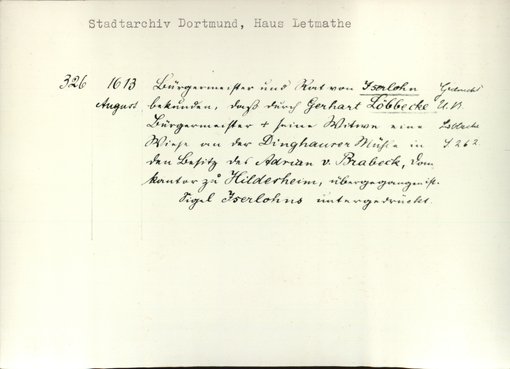 Stadtarchiv Dortmund, Haus Letmathe
326 1613 Bürgermeister und Rat von Iserlohn
August bekunden, daß durch Gerhart Löbbecke U.B.
Bürgermeister + seine Witwe eine Löbbecke
Wiese an der Dinghauser Mühle in S 262
den Besitz des Adrian v. Brabeck, Dom-
kantor zu Hildesheim, übergegangen ist.
Sigel Iserlohns untergedrückt.